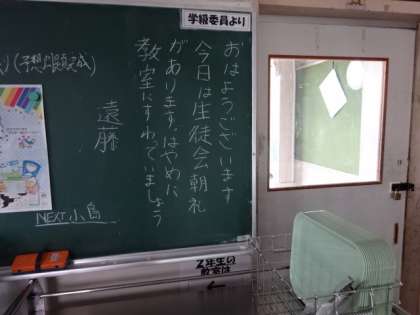 学級委員より
おはようございます
今日は生徒会朝礼
があります。はやめに
教室にすわっていましょう
遠藤
NEXT 小島
2年生の
教室は
←